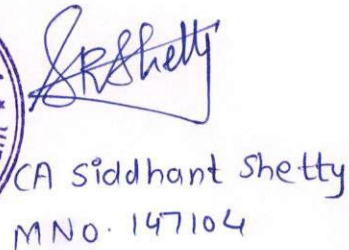 SRShetty
CA Siddhant Shetty
M NO. 147104